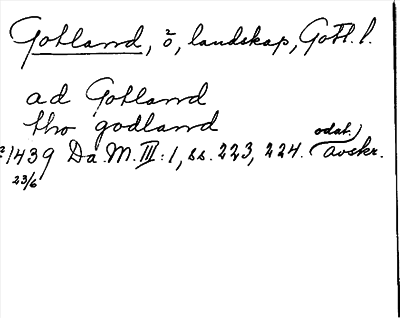 Gotland, ö, landskap, Gotl. l.
ad Gotland
tho godland
1439 Da. M. III: 1, ss. 223, 224. odat. avskr.
23/6